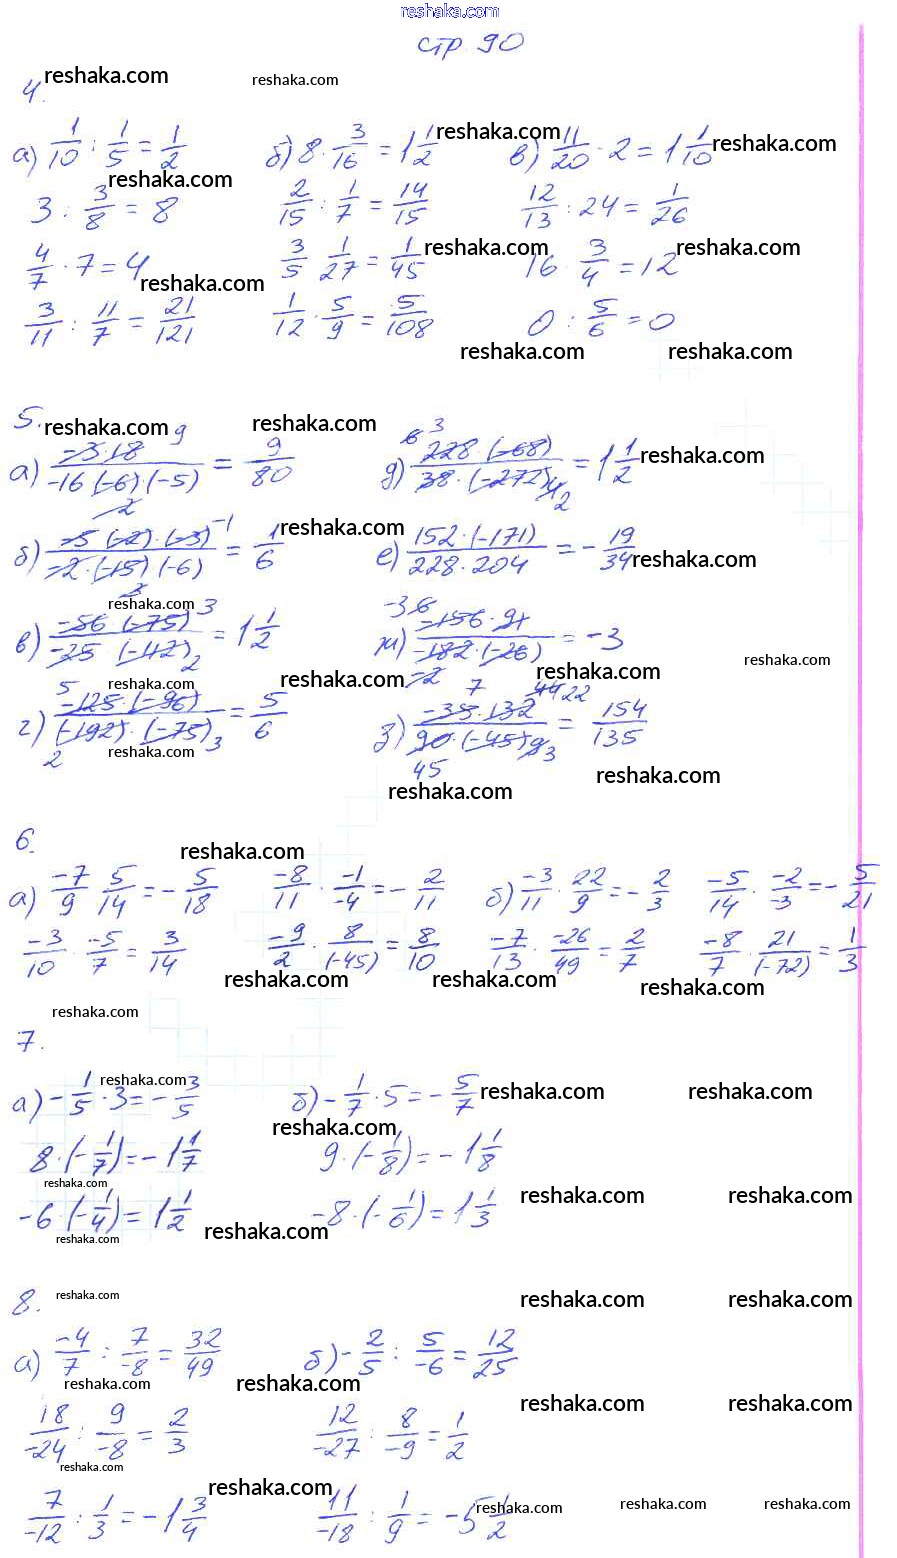 reshaka.com
стр 90
reshaka.com reshaka.com
4.
а) 1/10 : 1/5 = 1/2 б) 8 · 3/16 = 1 1/2 reshaka.com в) 11/20 · 2 = 1 1/10 reshaka.com
reshaka.com
3 : 3/8 = 8 2/15 : 1/7 = 14/15 12/13 : 24 = 1/26
4/7 · 7 = 4 3/5 · 1/27 = 1/45 reshaka.com 16 · 3/4 = 12 reshaka.com
reshaka.com
3/11 : 11/7 = 21/121 1/12 · 5/9 = 5/108 0 : 5/6 = 0
reshaka.com reshaka.com
5. reshaka.com reshaka.com
а) -3·18 / -16(-6)·(-5) = 9/80 д) 228·(-68) / 38·(-272) = 1 1/2 reshaka.com
reshaka.com
б) -5(-2)·(-3) / -2·(-15)(-6) = 1/6 е) 152·(-171) / 228·204 = - 19/34 reshaka.com
reshaka.com
в) -56(-75) / -25(-112) = 1 1/2 ж) -156·91 / -182·(-26) = -3 reshaka.com
reshaka.com reshaka.com reshaka.com
г) -125·(-96) / (-192)·(-75) = 5/6 з) -35·132 / 90·(-45) = 154/135
reshaka.com
reshaka.com reshaka.com
6.
reshaka.com
а) -7/9 · 5/14 = - 5/18 -8/11 · -1/-4 = - 2/11 б) -3/11 · 22/9 = - 2/3 -5/14 · -2/-3 = - 5/21
-3/10 · -5/7 = 3/14 -9/2 · 8/(-45) = 8/10 -7/13 · -26/49 = 2/7 -8/7 · 21/(-72) = 1/3
reshaka.com reshaka.com reshaka.com
reshaka.com
7.
reshaka.com
а) - 1/5 · 3 = - 3/5 б) - 1/7 · 5 = - 5/7 reshaka.com reshaka.com
reshaka.com
8 · (- 1/7) = - 1 1/7 9 · (- 1/8) = - 1 1/8
reshaka.com
-6 · (- 1/4) = 1 1/2 -8 · (- 1/6) = 1 1/3 reshaka.com reshaka.com
reshaka.com reshaka.com
8. reshaka.com reshaka.com reshaka.com
а) -4/7 : 7/-8 = 32/49 б) - 2/5 : 5/-6 = 12/25
reshaka.com reshaka.com
reshaka.com reshaka.com
18/-24 : 9/-8 = 2/3 12/-27 : 8/-9 = 1/2
reshaka.com reshaka.com
7/-12 : 1/3 = - 1 3/4 11/-18 : 1/9 = - 5 1/2
reshaka.com reshaka.com reshaka.com